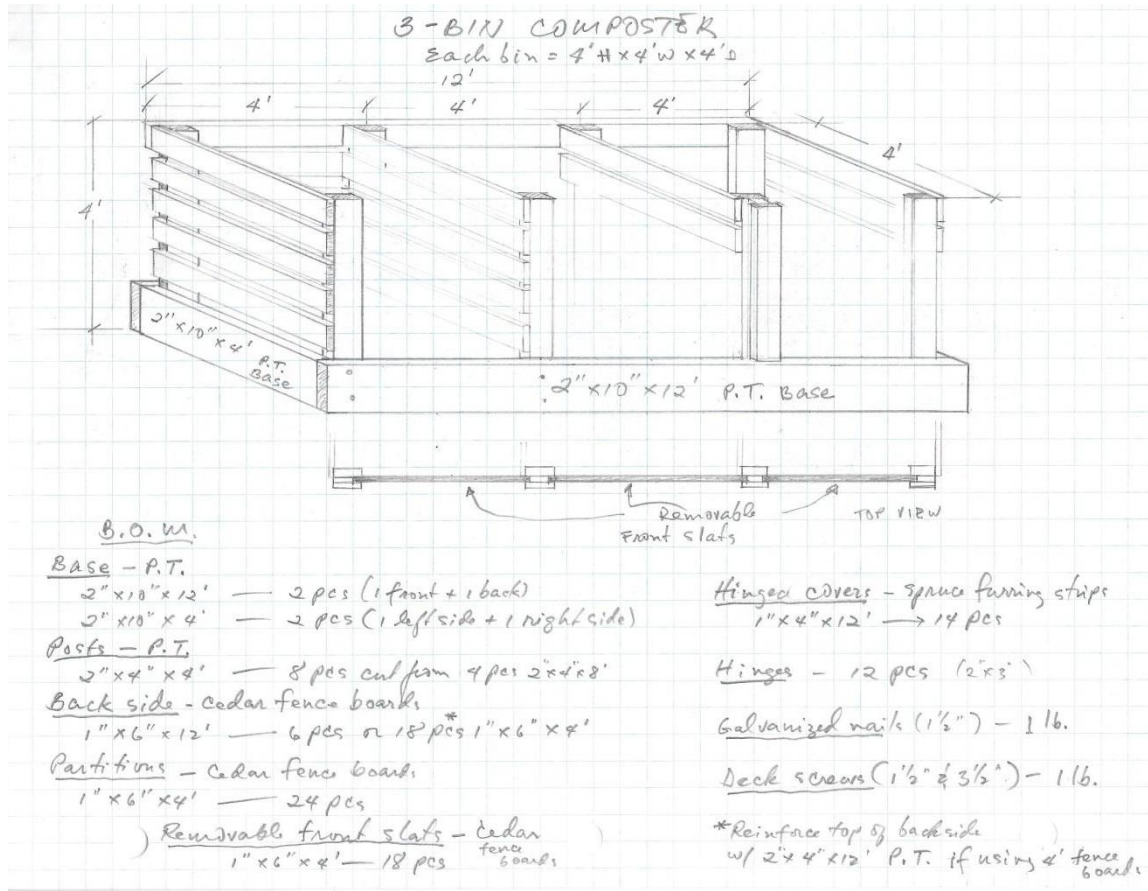 3-BIN COMPOSTER
Each bin = 4'H x 4'W x 4'D
12'
4' 4' 4'
4'
4'
2"x10"x4' P.T. Base
2"x10"x12' P.T. Base
Removable Front slats
TOP VIEW
B.O.M.
Base - P.T.
2"x10"x12' — 2 pcs (1 front + 1 back)
2"x10"x4' — 2 pcs (1 left side + 1 right side)
Posts - P.T.
2"x4"x4' — 8 pcs cut from 4 pcs 2"x4"x8'
Back side - cedar fence boards
1"x6"x12' — 6 pcs or 18 pcs* 1"x6"x4'
Partitions - cedar fence boards
1"x6"x4' — 24 pcs
Removable front slats - cedar fence boards
1"x6"x4' — 18 pcs
Hinged covers - spruce furring strips
1"x4"x12' → 14 pcs
Hinges - 12 pcs (2"x3")
Galvanized nails (1½") - 1 lb.
Deck screws (1½" & 3½") - 1 lb.
*Reinforce top of backside
w/ 2"x4"x12' P.T. if using 4' fence boards